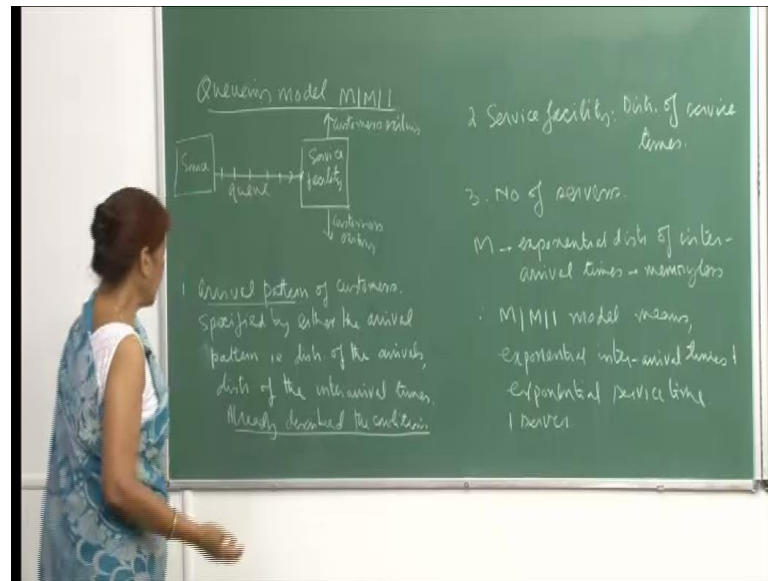 Queueing model M|M|1
↑customers exiting
Source
Service
facility
queue
↓customers
exiting
1 Arrival pattern of customers.
Specified by either the arrival
pattern ie distr. of the arrivals,
distr of the interarrival times.
Already described the conditions.
2 Service facility: Distr. of service
times.
3. No of servers.
M → exponential distr of inter-
arrival times → memoryless
∴ M|M|1 model means,
exponential inter-arrival times,
exponential service time
1 server